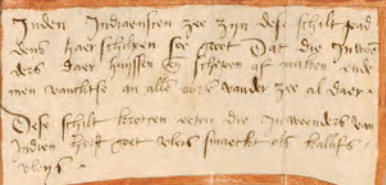 Inden Indiaenscen zee zijn dese schilt pad
dens haer schilpen soe groot Dat die Inwoe
ders daer huijssen en schepen af maken ende
men vanckse an alle oors vander zee al daer
Dese schilt krotten eeten die Inwoenders van
Indien heeft goet vleis smaeckt als kallifs
vleijs